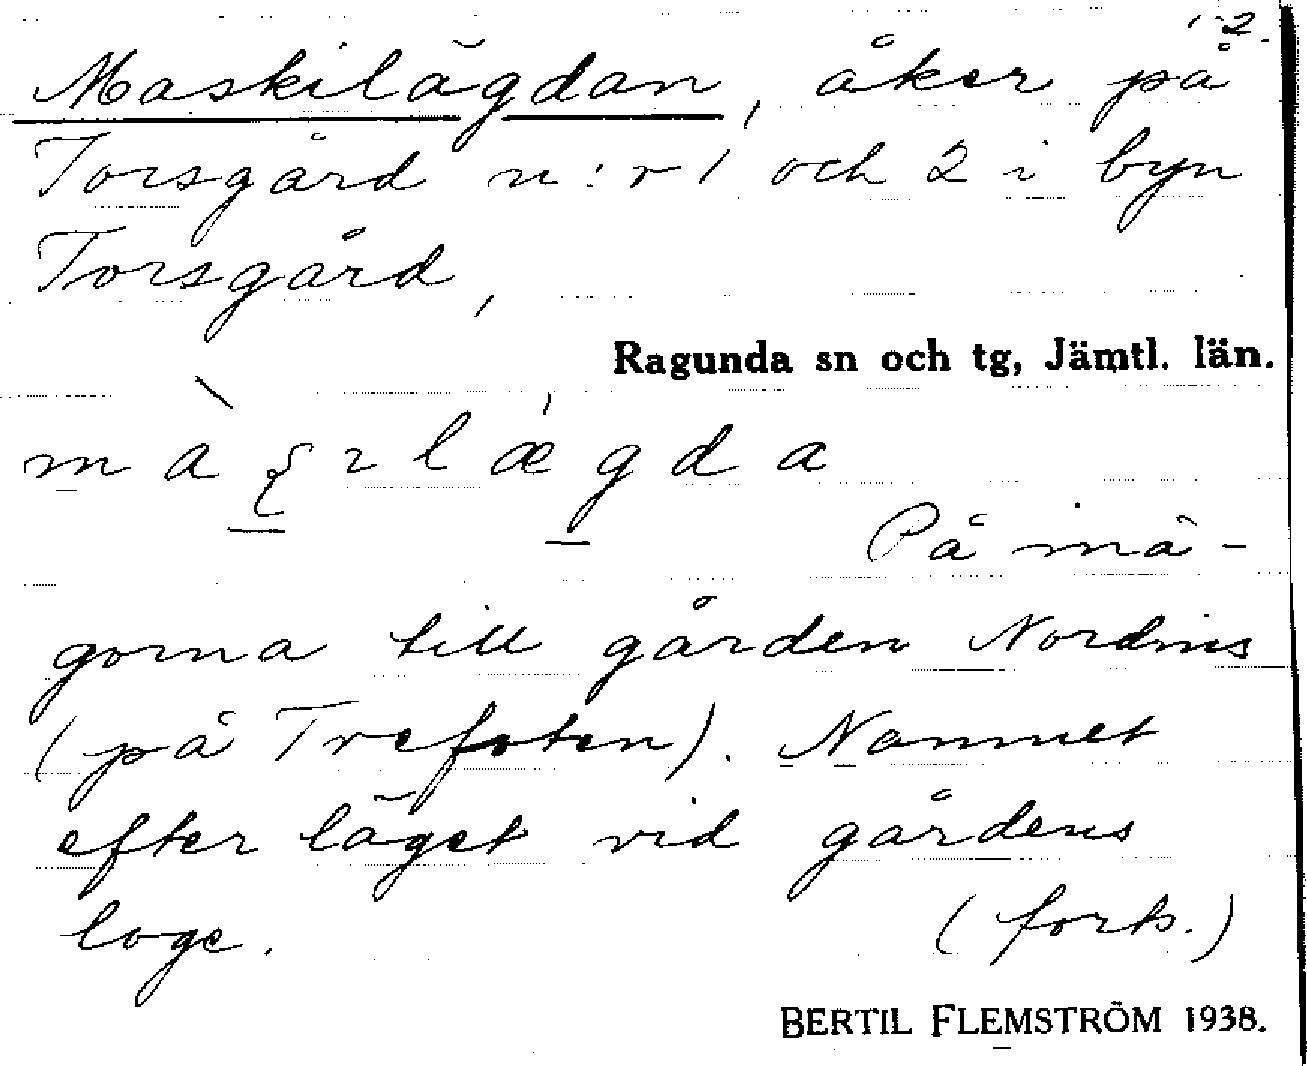 1-2.
Maskilägdan, åker på
Torsgård n:r 1 och 2 i byn
Torsgård,
Ragunda sn och tg, Jämtl. län.
På mä-
gorna till gården Nordnis
(på Trefoten). Namnet
efter läget vid gårdens
loge. (forts.)
BERTIL FLEMSTRÖM 1938.